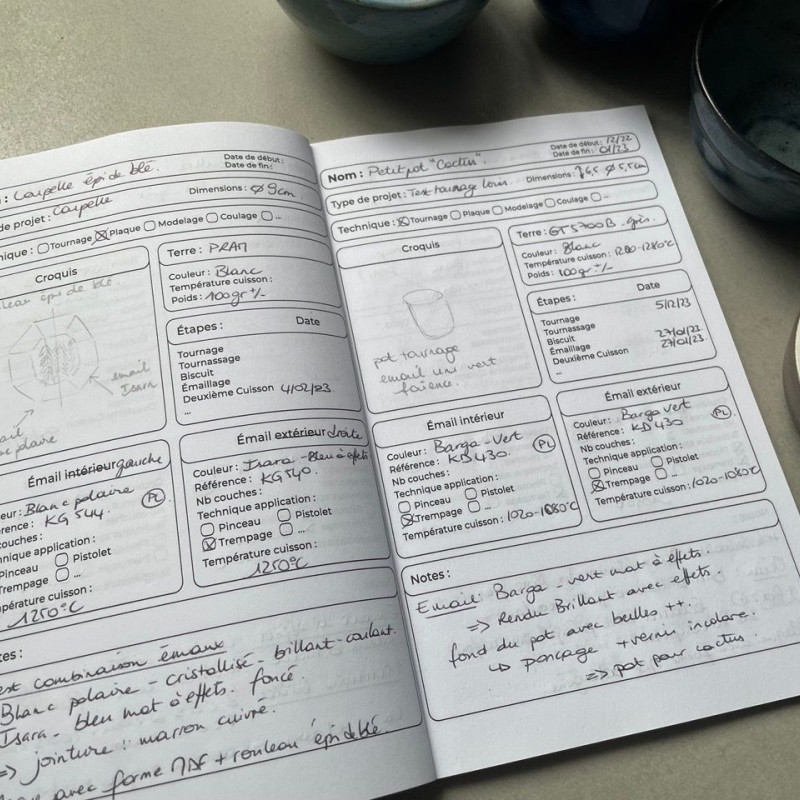 : Coupelle épi de blé.
Date de début :
Date de fin :
de projet : Coupelle
Dimensions : Ø 9cm
nique : Tournage Plaque Modelage Coulage ...
Croquis
épi de blé.
email
Isara
polaire
Terre : PRAM
Couleur : Blanc
Température cuisson :
Poids : 100gr +/-
Étapes : Date
Tournage
Tournassage
Biscuit
Émaillage
Deuxième Cuisson 4/02/23
...
Émail intérieur gauche
eur : Blanc polaire
érence : KG 544.
PL
couches :
hnique application :
Pinceau Pistolet
Trempage ...
pérature cuisson :
1250°C
Émail extérieur droite
Couleur : Isara - Bleu à effets
Référence : KG 540.
Nb couches :
Technique application :
Pinceau Pistolet
Trempage ...
Température cuisson :
1250°C
tes :
est combinaison émaux
Blanc polaire - cristallisé - brillant - coulant.
Isara - bleu mat à effets. foncé.
=> jointure : marron cuivré.
avec forme + rouleau épi de blé.
Nom : Petit pot "Cactus".
Date de début : 12/22
Date de fin : 01/23
Type de projet : Test tournage
Dimensions : 6,5 Ø 5,5cm
Technique : Tournage Plaque Modelage Coulage ...
Croquis
pot tournage
email uni vert
faience.
Terre : GT5700B - grès.
Couleur : Blanc
Température cuisson : 1200-1280°c
Poids : 100gr +/-
Étapes : Date
Tournage 5/12/23
Tournassage
Biscuit 27/01/23
Émaillage 27/01/23.
Deuxième Cuisson
...
Émail intérieur
Couleur : Barga - Vert
Référence : KD 430.
PL
Nb couches :
Technique application :
Pinceau Pistolet
Trempage ...
Température cuisson : 1020-1080°C
Émail extérieur
Couleur : Barga vert
Référence : KD 430
PL
Nb couches :
Technique application :
Pinceau Pistolet
Trempage ...
Température cuisson : 1020-1080°C
Notes :
Email Barga - vert mat à effets.
=> Rendu Brillant avec effets.
fond du pot avec bulles ++.
↳ ponçage + vernis incolore.
=> pot pour cactus